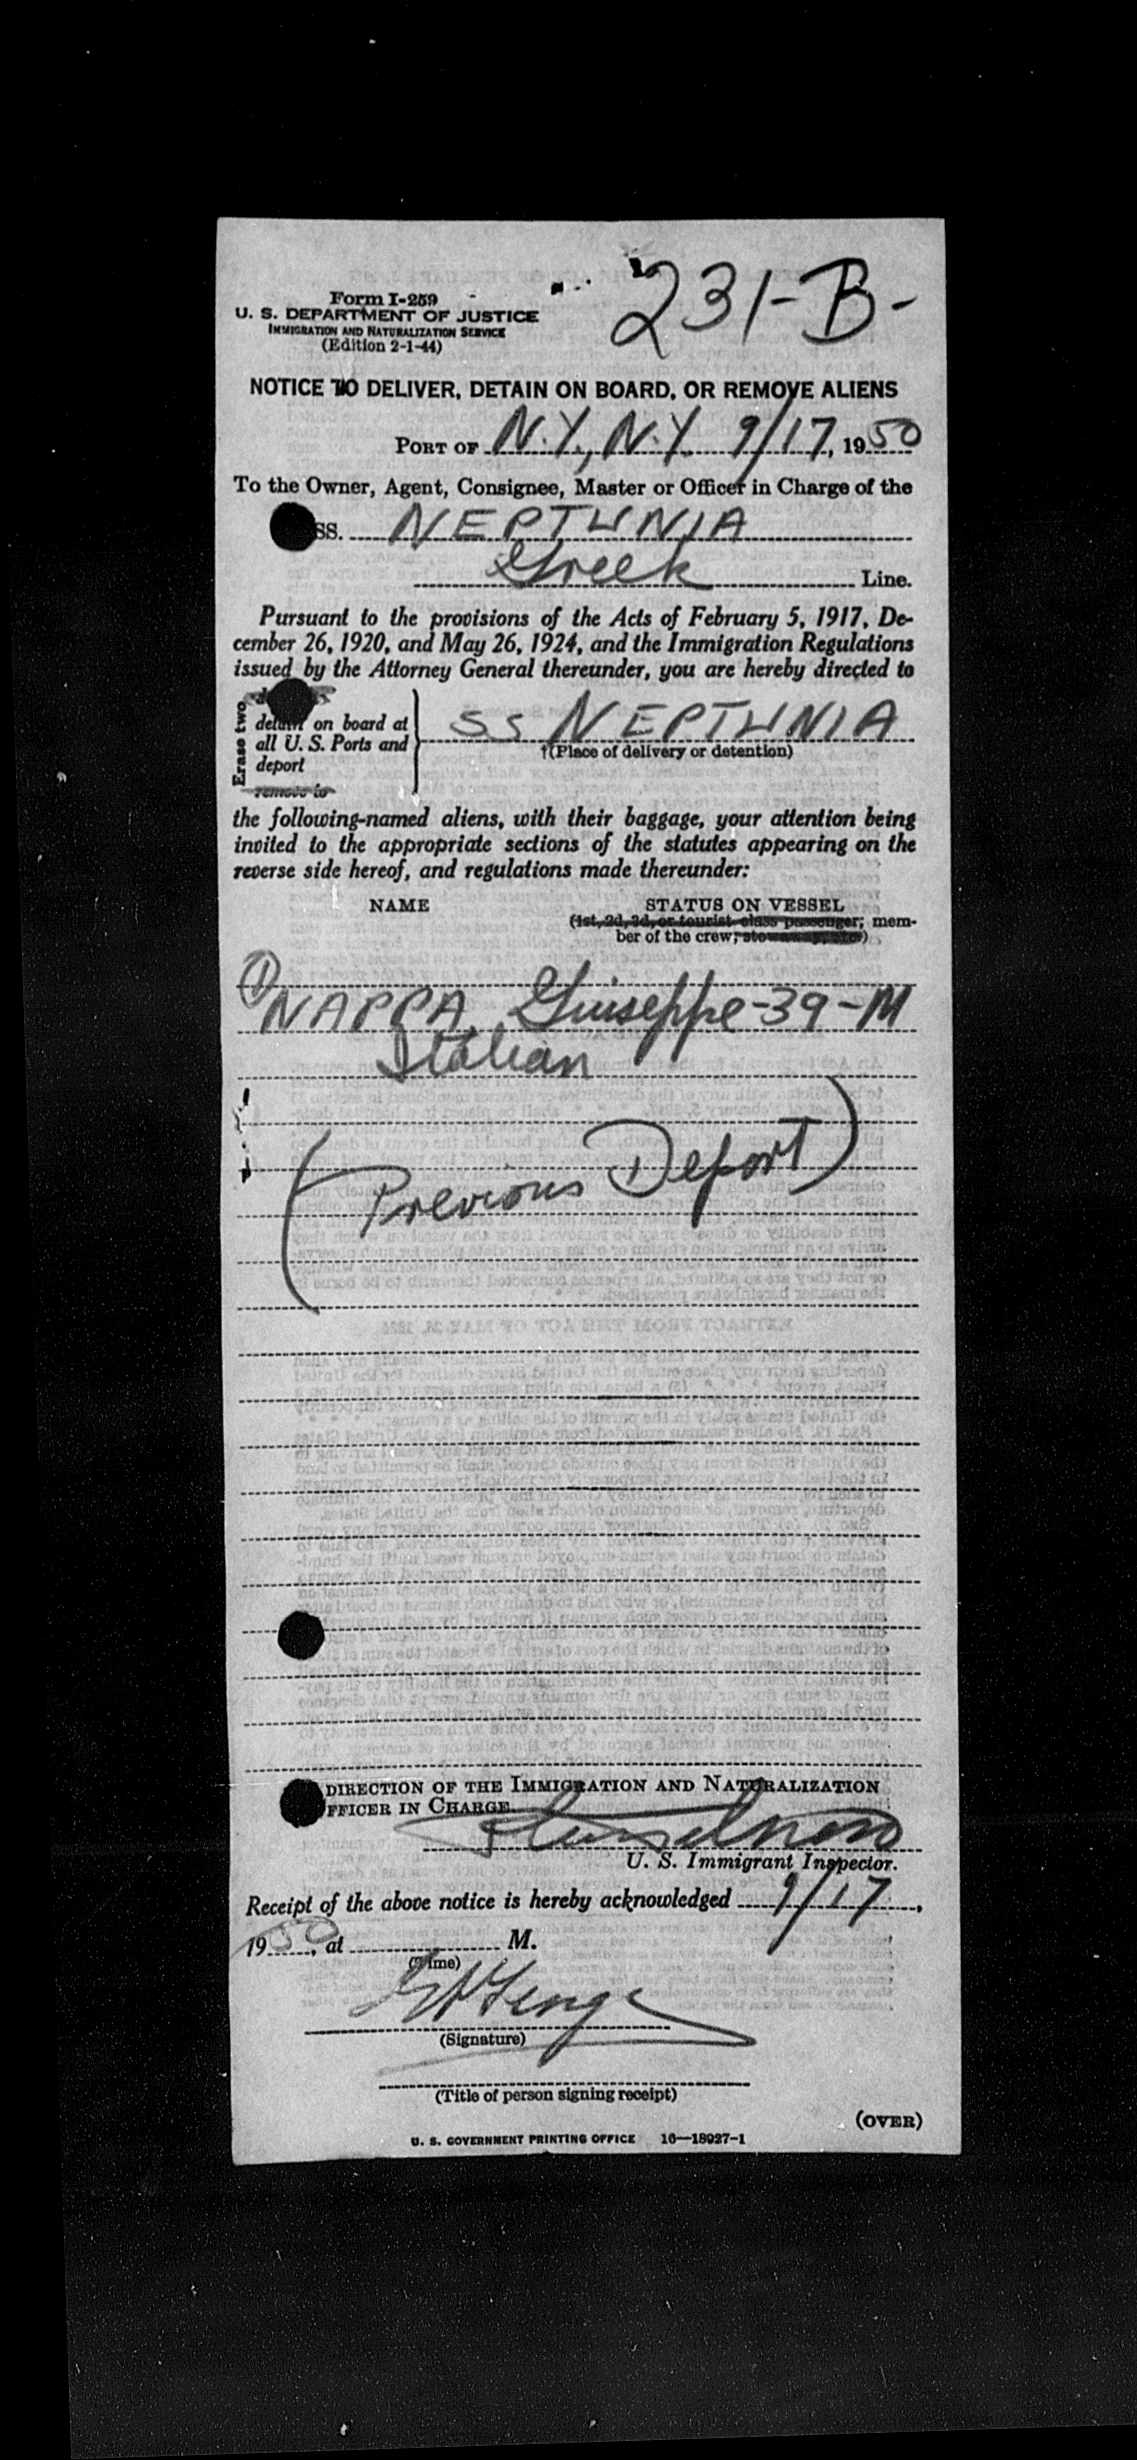 231-B-
Form I-259
U. S. DEPARTMENT OF JUSTICE
IMMIGRATION AND NATURALIZATION SERVICE
(Edition 2-1-44)
NOTICE TO DELIVER, DETAIN ON BOARD, OR REMOVE ALIENS
PORT OF N.Y., N.Y. 9/17, 1950
To the Owner, Agent, Consignee, Master or Officer in Charge of the
SS. NEPTUNIA
Greek Line.
Pursuant to the provisions of the Acts of February 5, 1917, De-
cember 26, 1920, and May 26, 1924, and the Immigration Regulations
issued by the Attorney General thereunder, you are hereby directed to
Erase two
detain on board at
all U. S. Ports and
deport
remove to
SS NEPTUNIA
†(Place of delivery or detention)
the following-named aliens, with their baggage, your attention being
invited to the appropriate sections of the statutes appearing on the
reverse side hereof, and regulations made thereunder:
NAME STATUS ON VESSEL
(1st, 2d, 3d, or tourist class passenger; mem-
ber of the crew; stowaway, etc.)
① NAPPA, Giuseppe-39-M
Italian
(Previous Deport)
DIRECTION OF THE IMMIGRATION AND NATURALIZATION
FFICER IN CHARGE.
U. S. Immigrant Inspector.
Receipt of the above notice is hereby acknowledged 9/17,
1950, at M.
(Time)
(Signature)
(Title of person signing receipt)
(OVER)
U. S. GOVERNMENT PRINTING OFFICE 16—18927-1